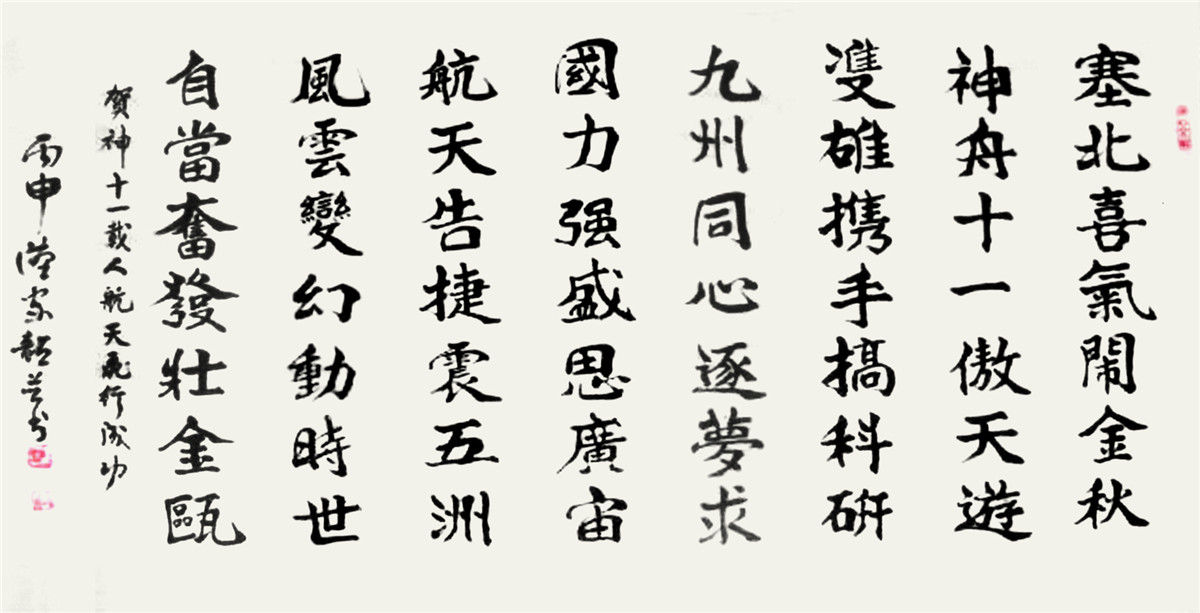 塞北喜氣鬧金秋
神舟十一傲天遊
雙雄携手搞科研
九州同心逐夢求
國力强盛思廣宙
航天告捷震五洲
風雲變幻動時世
自當奮發壯金甌
賀神十一載人航天飛行成功
丙申